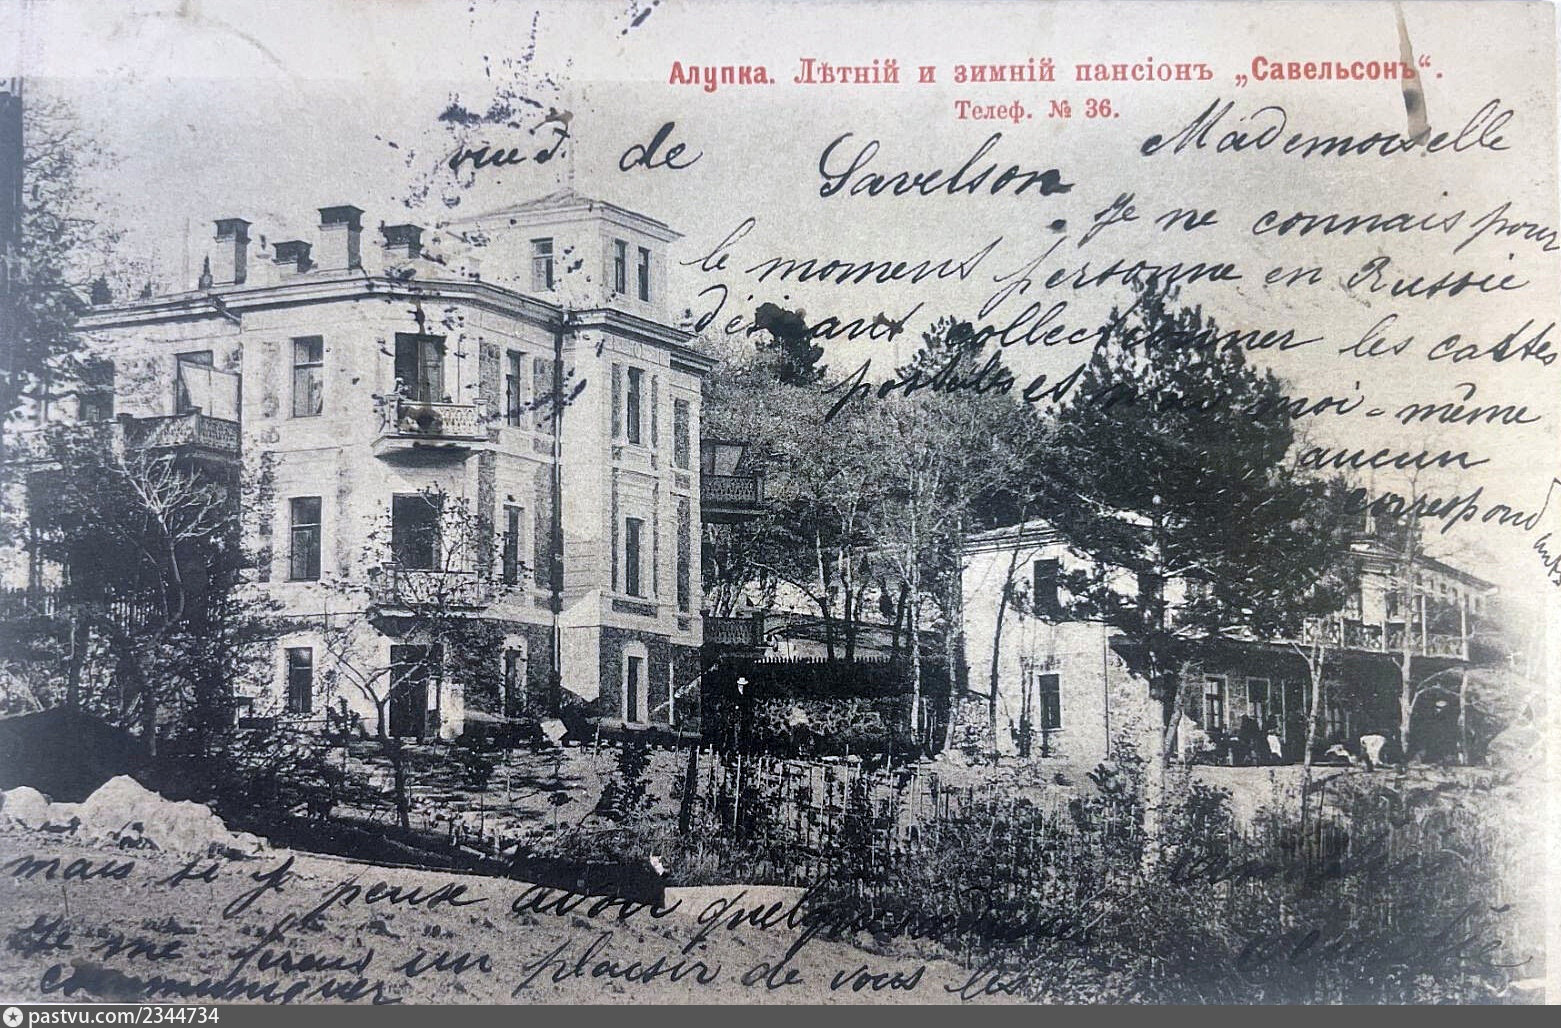 Алупка. Лѣтній и зимній пансіонъ „Савельсонъ“.
Телеф. № 36.
de Savelson
Mademoiselle
Je ne connais pour
le moment personne en Russie
désirant collectionner les cartes
postales et moi-même
aucun
correspond
mais si je peux avoir
Je me ferais un plaisir de vous les
communiquer
pastvu.com/2344734